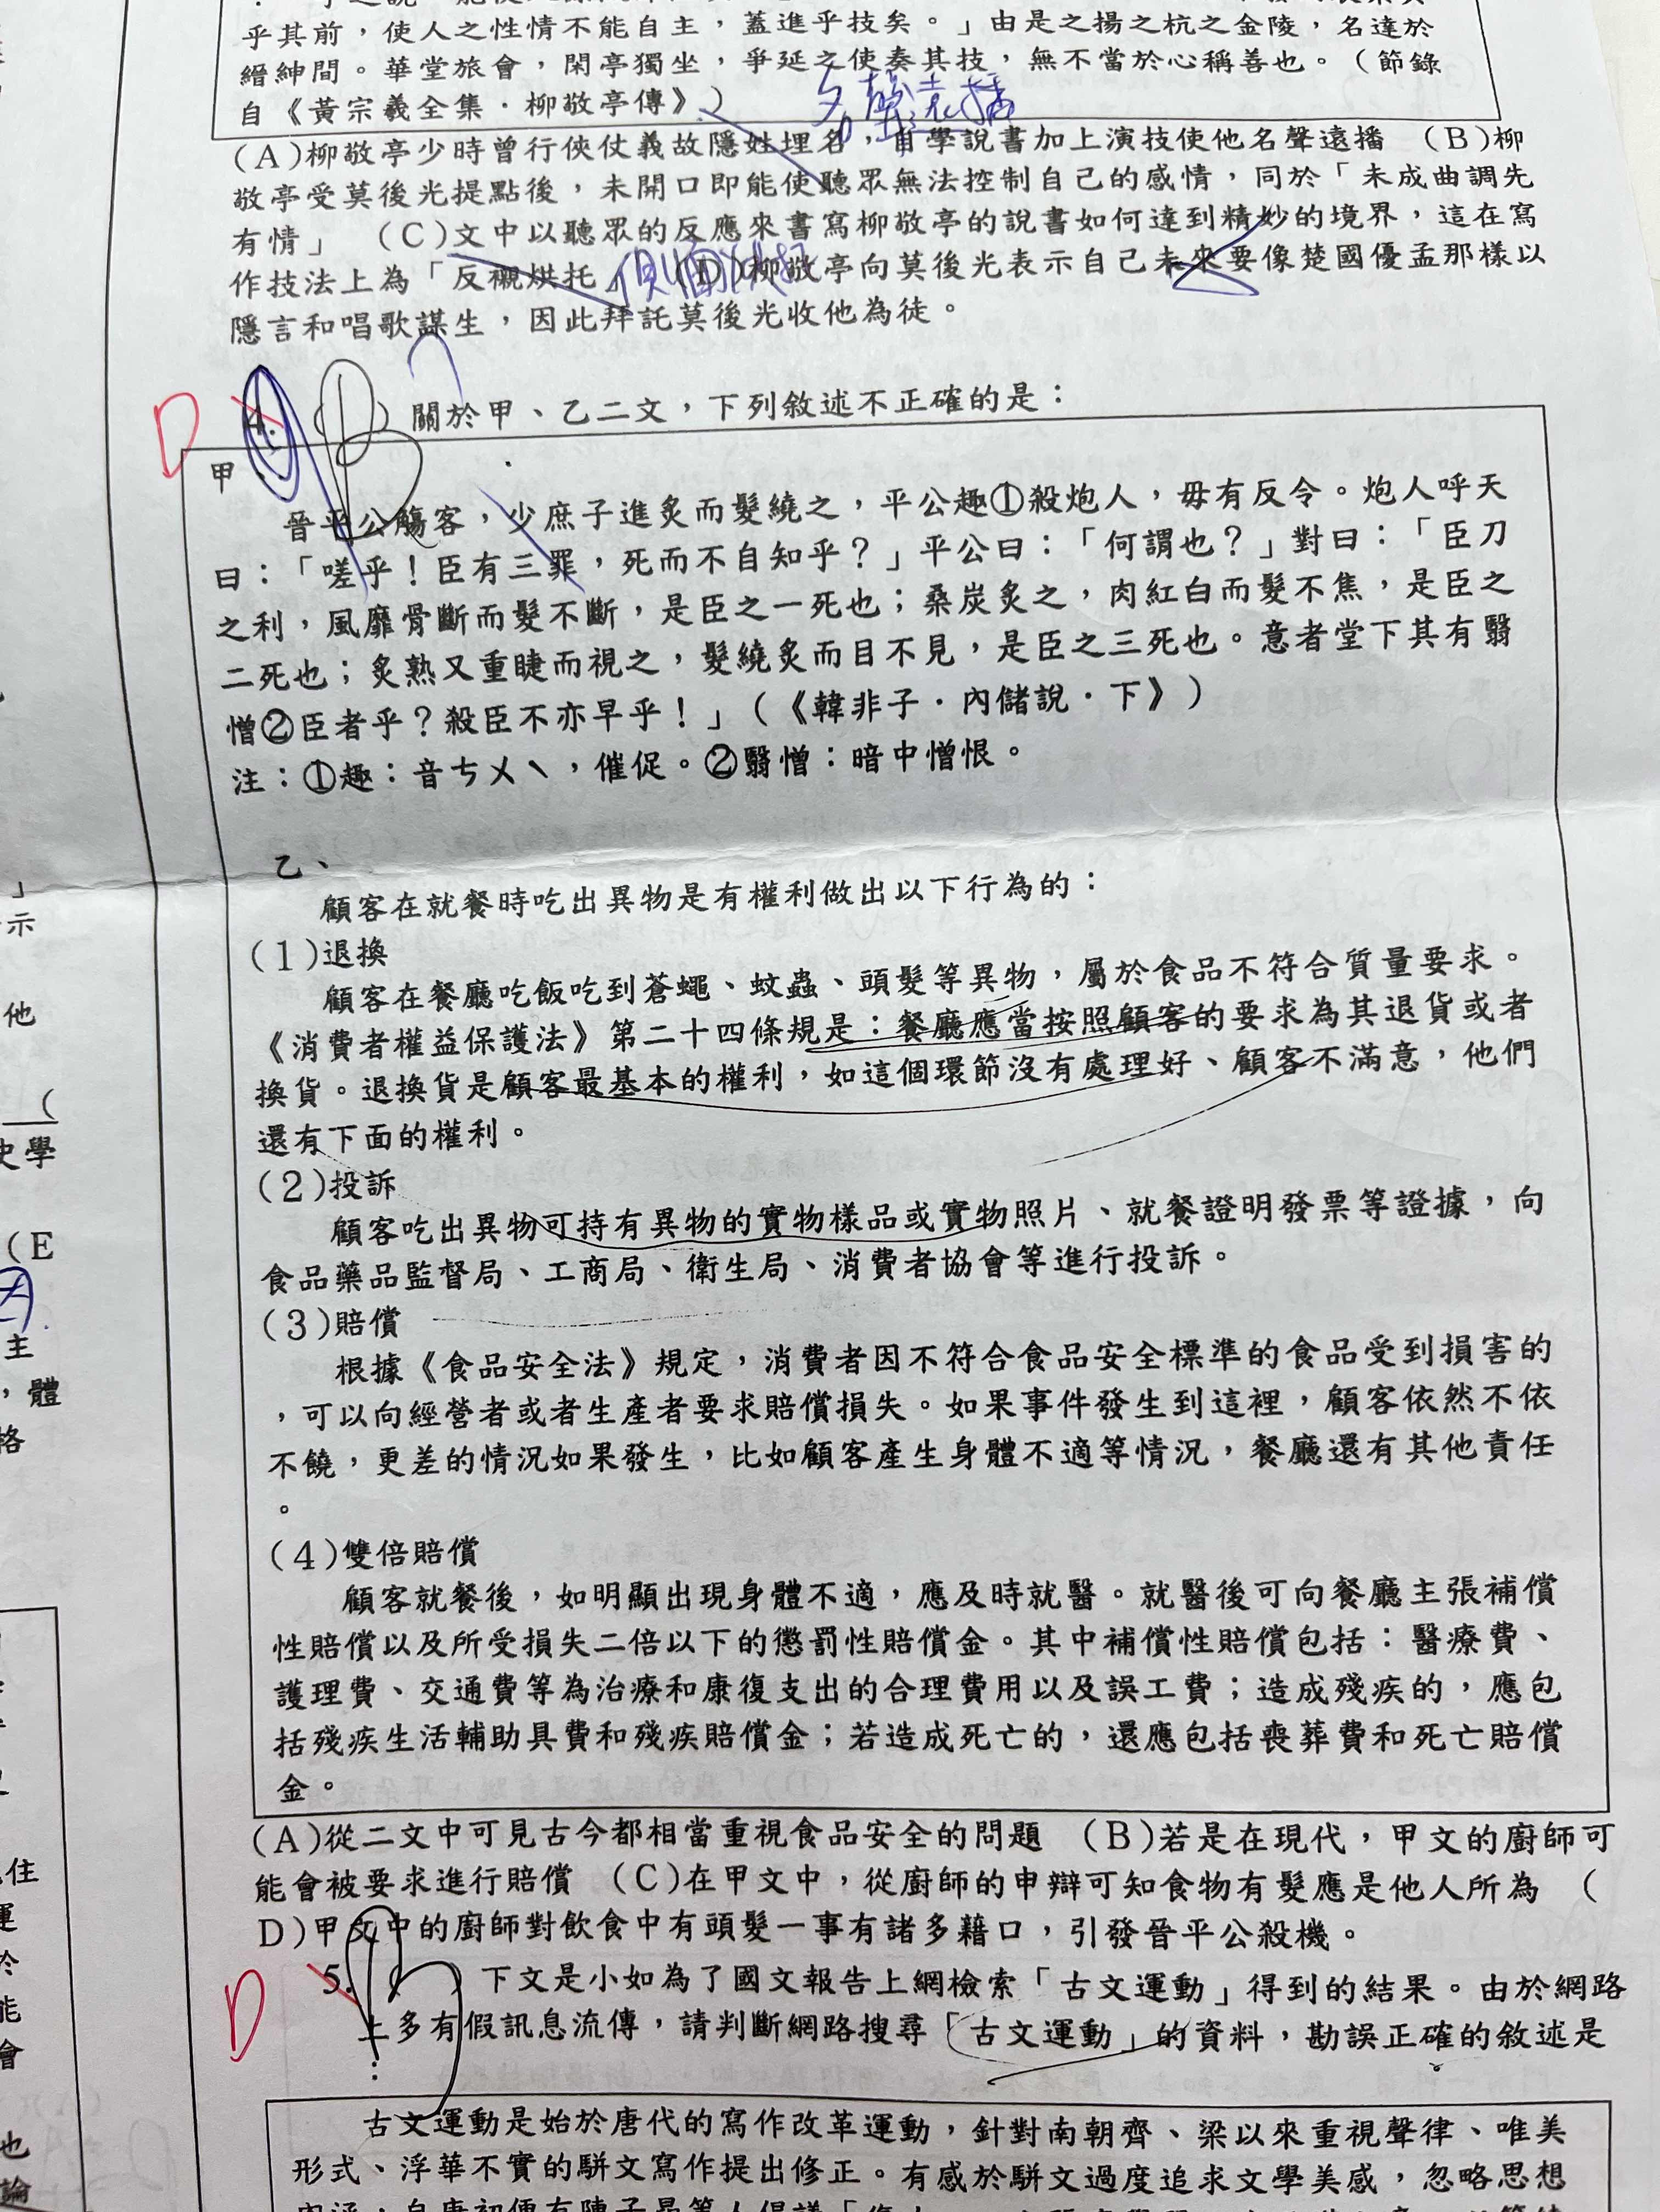 乎其前，使人之性情不能自主，蓋進乎技矣。」由是之揚之杭之金陵，名達於
縉紳間。華堂旅會，閑亭獨坐，爭延之使奏其技，無不當於心稱善也。（節錄
自《黃宗羲全集．柳敬亭傳》）
名聲遠播
(A)柳敬亭少時曾行俠仗義故隱姓埋名，自學說書加上演技使他名聲遠播　(B)柳
敬亭受莫後光提點後，未開口即能使聽眾無法控制自己的感情，同於「未成曲調先
有情」　(C)文中以聽眾的反應來書寫柳敬亭的說書如何達到精妙的境界，這在寫
作技法上為「反襯烘托」　(D)柳敬亭向莫後光表示自己未來要像楚國優孟那樣以
側面
隱言和唱歌謀生，因此拜託莫後光收他為徒。
D
4. (　) 關於甲、乙二文，下列敘述不正確的是：
甲、
晉平公觴客，少庶子進炙而髮繞之，平公趣①殺炮人，毋有反令。炮人呼天
曰：「嗟乎！臣有三罪，死而不自知乎？」平公曰：「何謂也？」對曰：「臣刀
之利，風靡骨斷而髮不斷，是臣之一死也；桑炭炙之，肉紅白而髮不焦，是臣之
二死也；炙熟又重睫而視之，髮繞炙而目不見，是臣之三死也。意者堂下其有翳
憎②臣者乎？殺臣不亦早乎！」（《韓非子．內儲說．下》）
注：①趣：音ㄘㄨˋ，催促。②翳憎：暗中憎恨。
乙、
顧客在就餐時吃出異物是有權利做出以下行為的：
(1)退換
顧客在餐廳吃飯吃到蒼蠅、蚊蟲、頭髮等異物，屬於食品不符合質量要求。
《消費者權益保護法》第二十四條規是：餐廳應當按照顧客的要求為其退貨或者
換貨。退換貨是顧客最基本的權利，如這個環節沒有處理好、顧客不滿意，他們
還有下面的權利。
(2)投訴
顧客吃出異物可持有異物的實物樣品或實物照片、就餐證明發票等證據，向
食品藥品監督局、工商局、衛生局、消費者協會等進行投訴。
(3)賠償
根據《食品安全法》規定，消費者因不符合食品安全標準的食品受到損害的
，可以向經營者或者生產者要求賠償損失。如果事件發生到這裡，顧客依然不依
不饒，更差的情況如果發生，比如顧客產生身體不適等情況，餐廳還有其他責任
。
(4)雙倍賠償
顧客就餐後，如明顯出現身體不適，應及時就醫。就醫後可向餐廳主張補償
性賠償以及所受損失二倍以下的懲罰性賠償金。其中補償性賠償包括：醫療費、
護理費、交通費等為治療和康復支出的合理費用以及誤工費；造成殘疾的，應包
括殘疾生活輔助具費和殘疾賠償金；若造成死亡的，還應包括喪葬費和死亡賠償
金。
(A)從二文中可見古今都相當重視食品安全的問題　(B)若是在現代，甲文的廚師可
能會被要求進行賠償　(C)在甲文中，從廚師的申辯可知食物有髮應是他人所為　(
D)甲文中的廚師對飲食中有頭髮一事有諸多藉口，引發晉平公殺機。
D
5. (　) 下文是小如為了國文報告上網檢索「古文運動」得到的結果。由於網路
上多有假訊息流傳，請判斷網路搜尋「古文運動」的資料，勘誤正確的敘述是
：
古文運動是始於唐代的寫作改革運動，針對南朝齊、梁以來重視聲律、唯美
形式、浮華不實的駢文寫作提出修正。有感於駢文過度追求文學美感，忽略思想